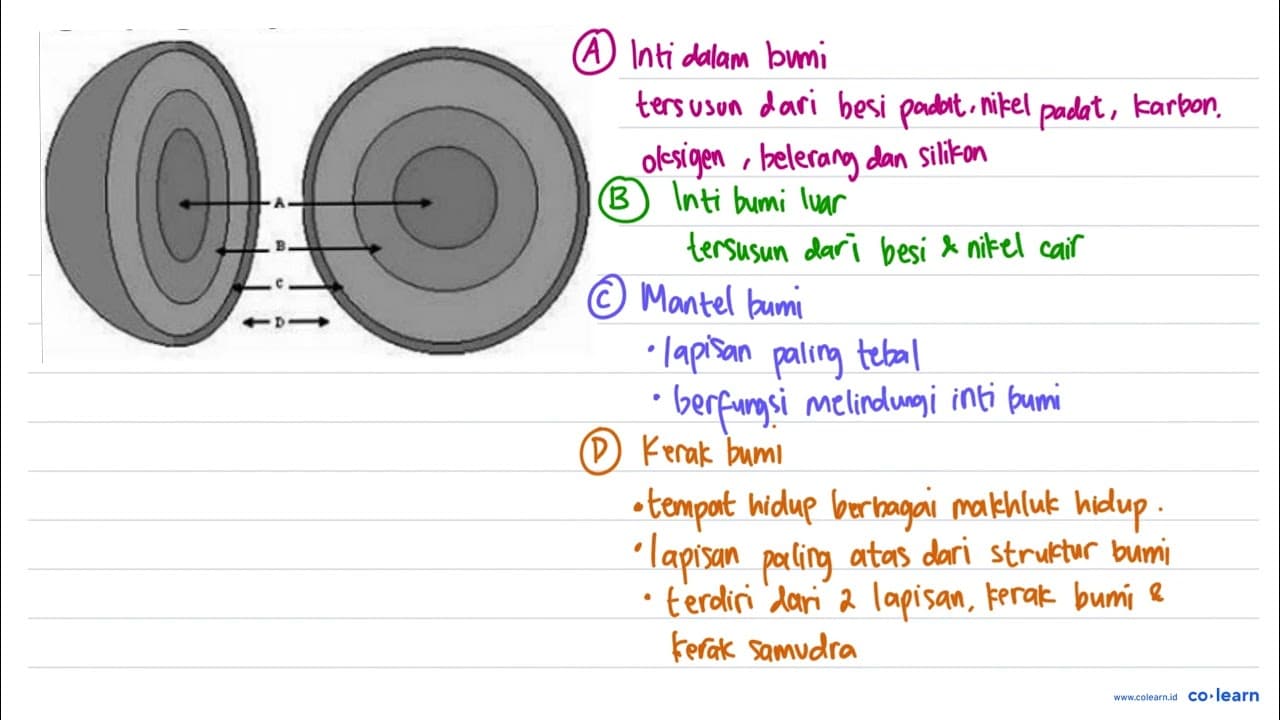 A
B
C
D
A Inti dalam bumi
tersusun dari besi padat, nikel padat, karbon.
oksigen, belerang dan silikon
B Inti bumi luar
tersusun dari besi & nikel cair
C Mantel bumi
• lapisan paling tebal
• berfungsi melindungi inti bumi
D Kerak bumi
• tempat hidup berbagai makhluk hidup.
• lapisan paling atas dari struktur bumi
• terdiri dari 2 lapisan, kerak bumi &
kerak samudra
www.colearn.id co·learn